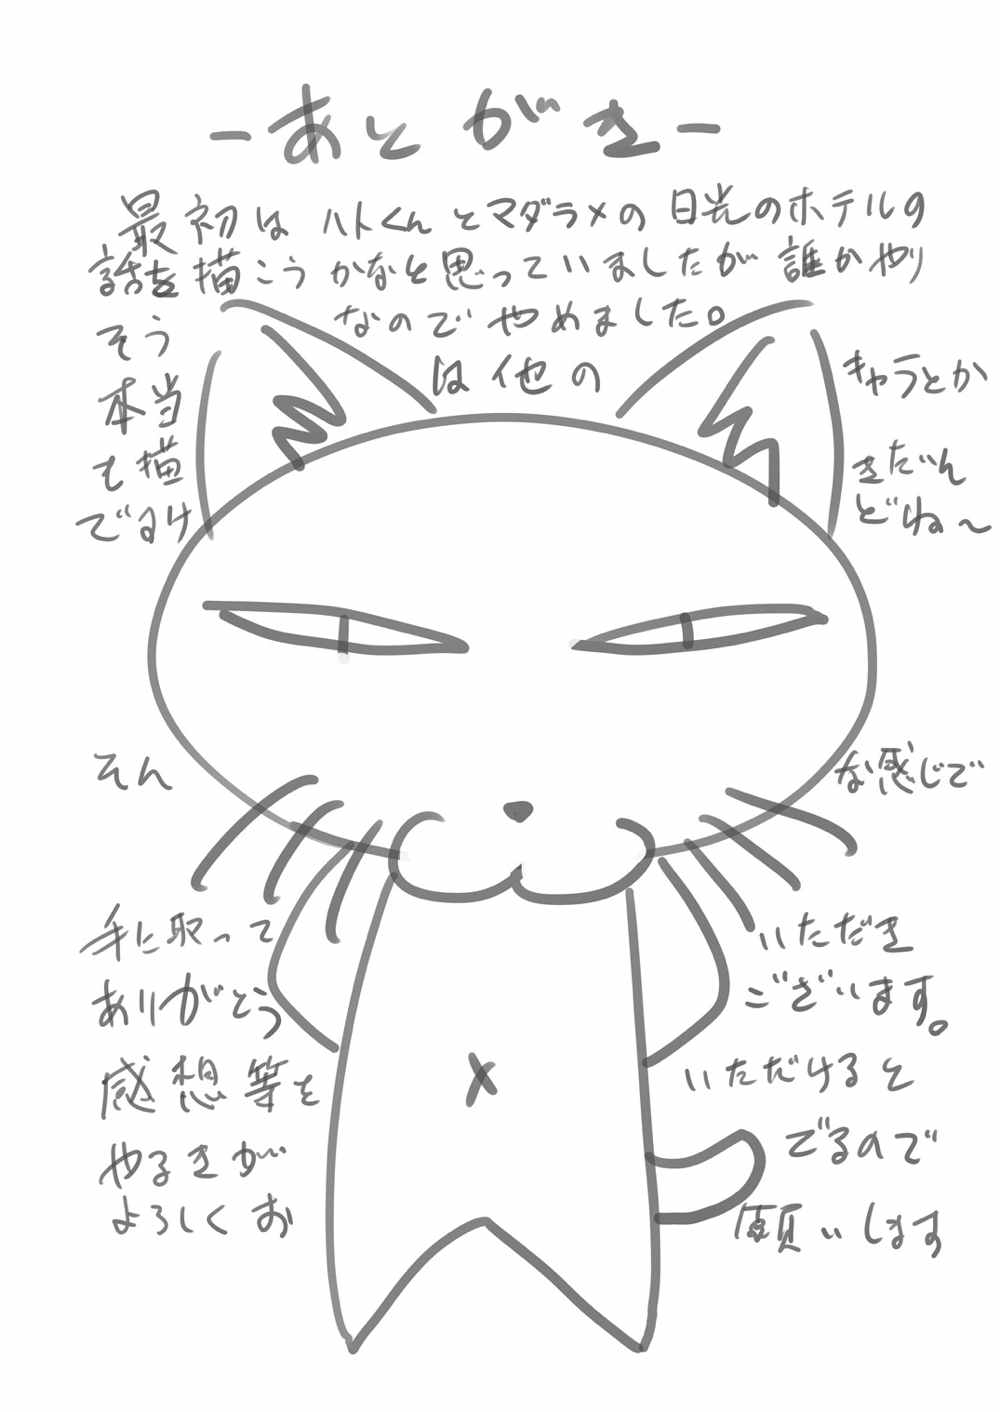 -あとがき-
最初は ハトくんとマダラメの 日光のホテルの
話を描こうかなと思っていましたが 誰かやり
そう なのでやめました。
本当は他のキャラとか
も描きだいん
でるけどね〜
そんな感じで
手に取っていただき
ありがとうございます。
感想等をいただけると
やるきがでるので
よろしくお願いします